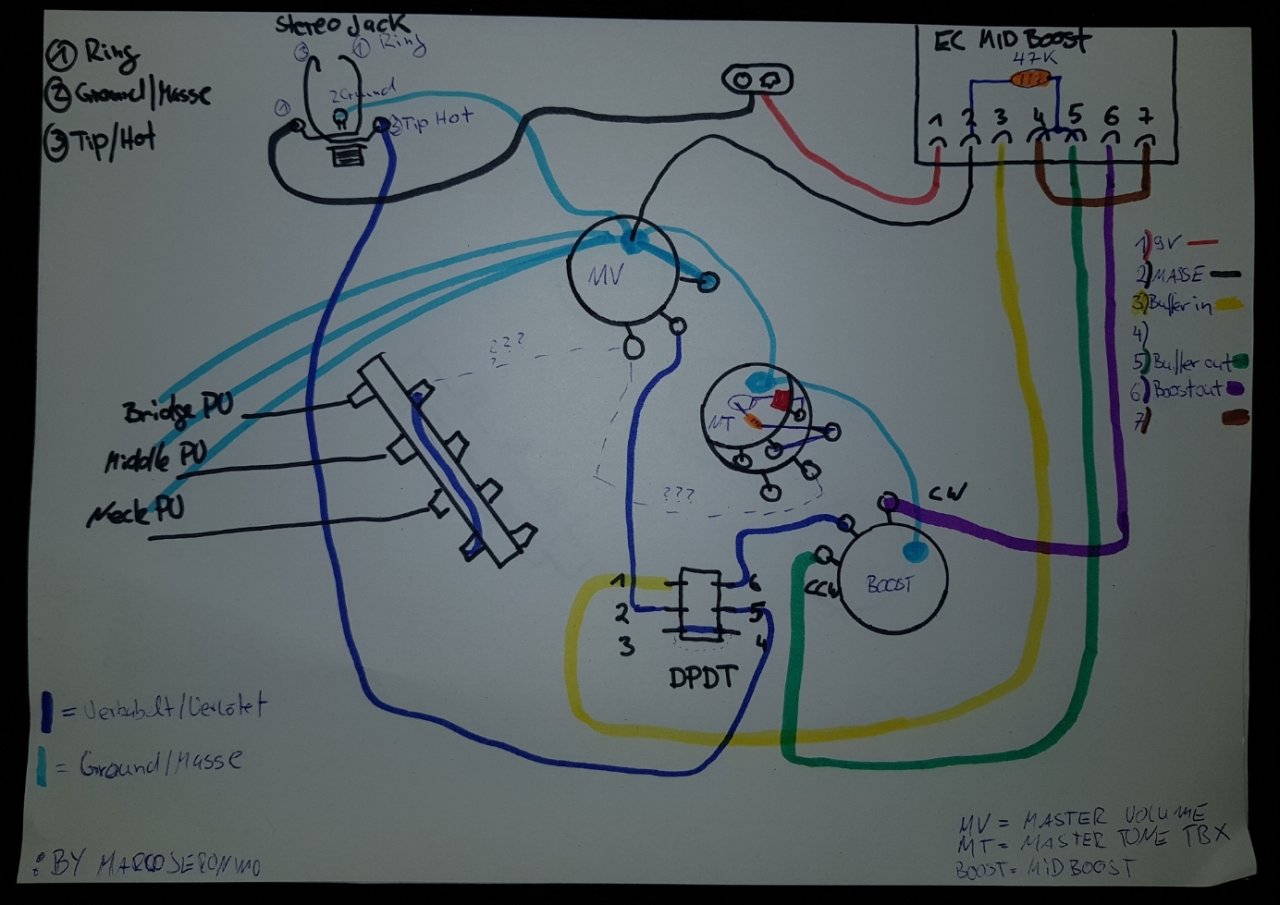 Stereo Jack
① Ring
② Ground/Masse
③ Tip/Hot
③
① Ring
2 Ground
①
③ Tip Hot
EC MID BOOST
47K
1 2 3 4 5 6 7
1) 9V
2) MASSE
3) Buffer in
4)
5) Buffer out
6) Boost out
7)
MV
???
Bridge PU
Middle PU
Neck PU
MT
???
CW
CCW
BOOST
1
2
3
6
5
4
DPDT
= Verkabelt/Verlötet
= Ground/Masse
: BY MARCOJERONIMO
MV = MASTER VOLUME
MT = MASTER TONE TBX
BOOST = MIDBOOST